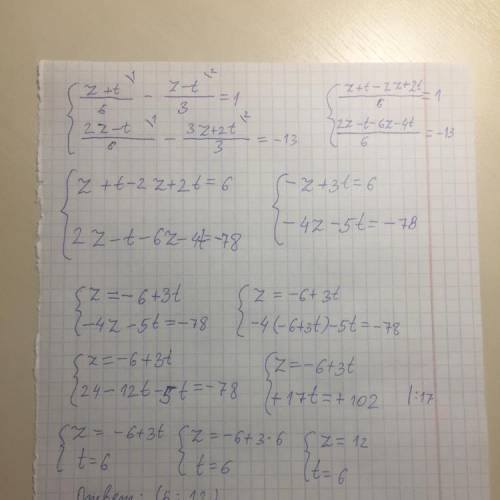 { (z+t)/6 \1 - (z-t)/3 \2 = 1
(2z-t)/6 \1 - (3z+2t)/3 \2 = -13
{ (z+t-2z+2t)/6 = 1
(2z-t-6z-4t)/6 = -13
{ z+t-2z+2t=6
2z-t-6z-4t=-78
{ -z+3t=6
-4z-5t=-78
{ z=-6+3t
-4z-5t=-78
{ z=-6+3t
-4(-6+3t)-5t=-78
{ z=-6+3t
24-12t-5t=-78
{ z=-6+3t
+17t=+102 |:17
{ z=-6+3t
t=6
{ z=-6+3·6
t=6
{ z=12
t=6
Ответ: (6;12)